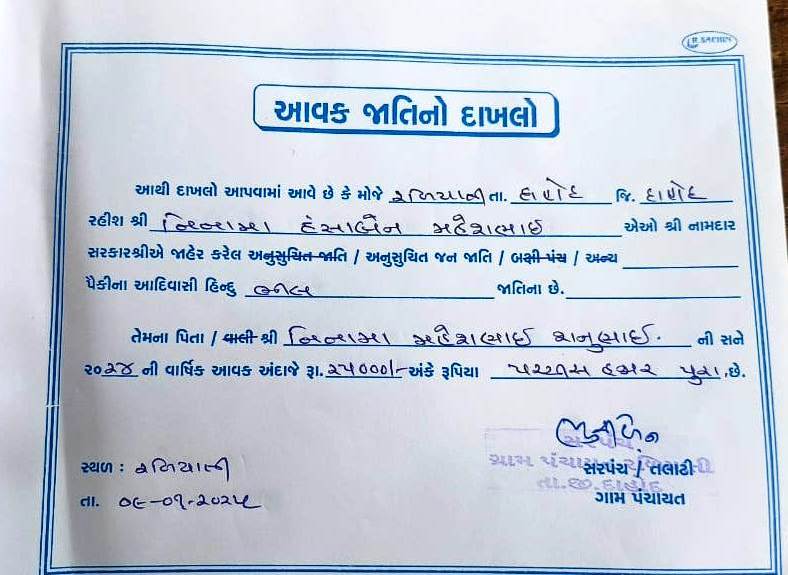 R. SACHIN
આવક જાતિનો દાખલો
આથી દાખલો આપવામાં આવે છે કે મોજે રળિયાતી તા. દાહોદ જિ. દાહોદ
રહીશ શ્રી નિનામા હંસાબેન મહેશભાઈ એઓ શ્રી નામદાર
સરકારશ્રીએ જાહેર કરેલ અનુસુચિત જાતિ / અનુસુચિત જન જાતિ / બક્ષી પંચ / અન્ય
પૈકીના આદિવાસી હિન્દુ ભીલ જાતિના છે.
તેમના પિતા / વાલી શ્રી નિનામા મહેશભાઈ રાનુભાઈ. ની સને
૨૦૨૪ ની વાર્ષિક આવક અંદાજે રૂા. ૨૫૦૦૦/- અંકે રૂપિયા પચ્ચીસ હજાર પુરા છે.
સરપંચ
સ્થળ : રળિયાતી
ગ્રામ પંચાયત રળિયાતી
સરપંચ / તલાટી
તા.જી. દાહોદ
તા. ૦૯-૦૧-૨૦૨૫
ગામ પંચાયત